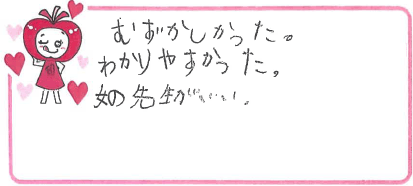 むずかしかった。
わかりやすかった。
女の先生がいい。